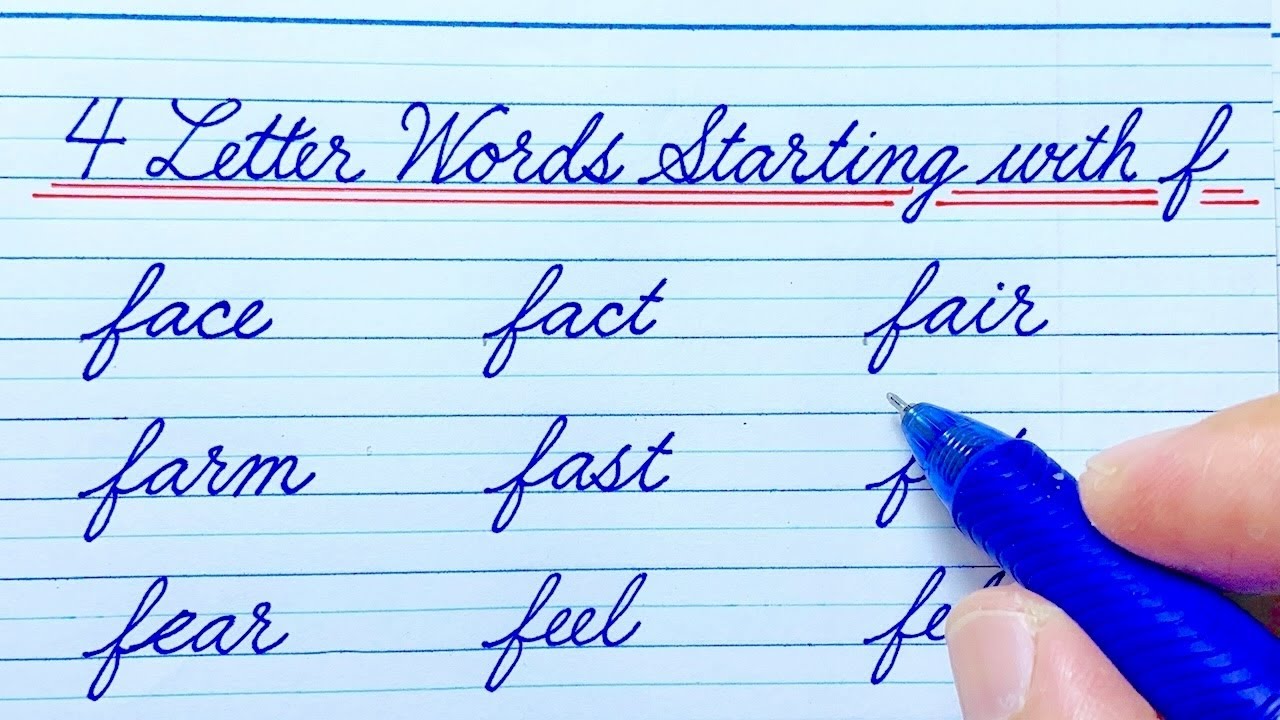 4 Letter Words Starting with f
face fact fair
farm fast
fear feel